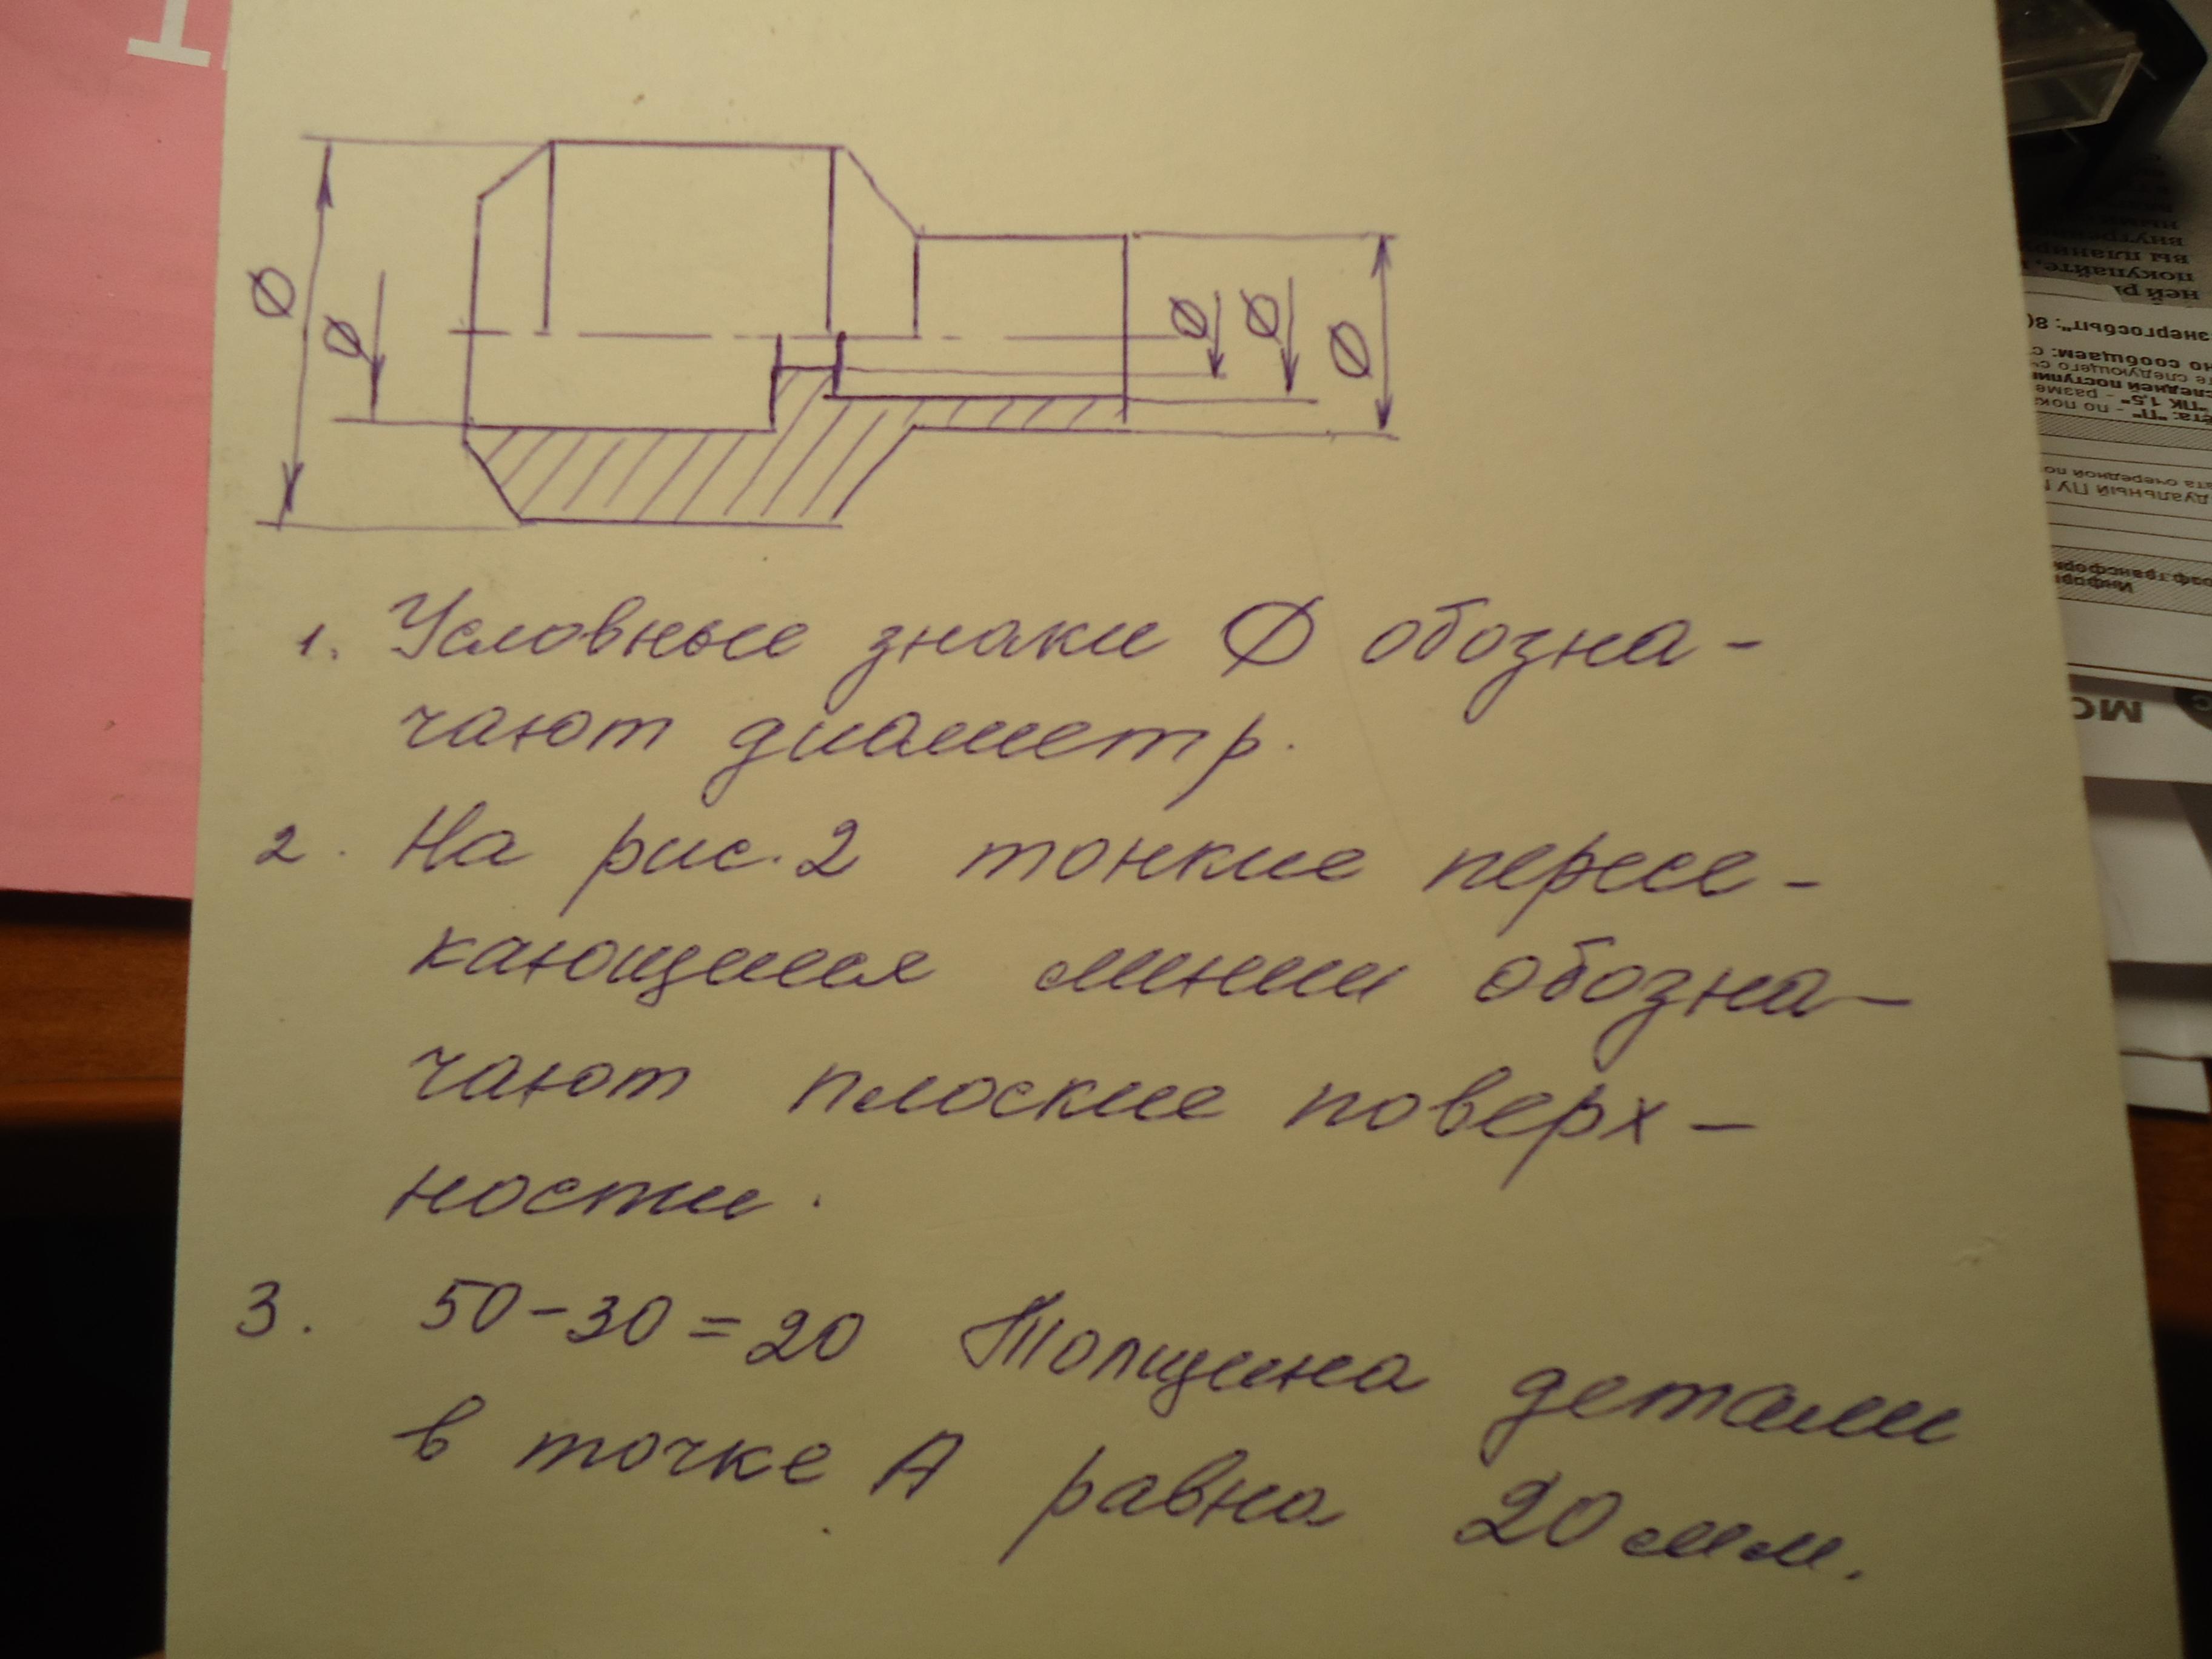 Ø
Ø
Ø
Ø
Ø
1. Условные знаки Ø обозна-
чают диаметр.
2. На рис. 2 тонкие пересе-
кающиеся линии обозна-
чают плоские поверх-
ности.
3. 50-30=20 Толщина детали
в точке А равна 20 мм.